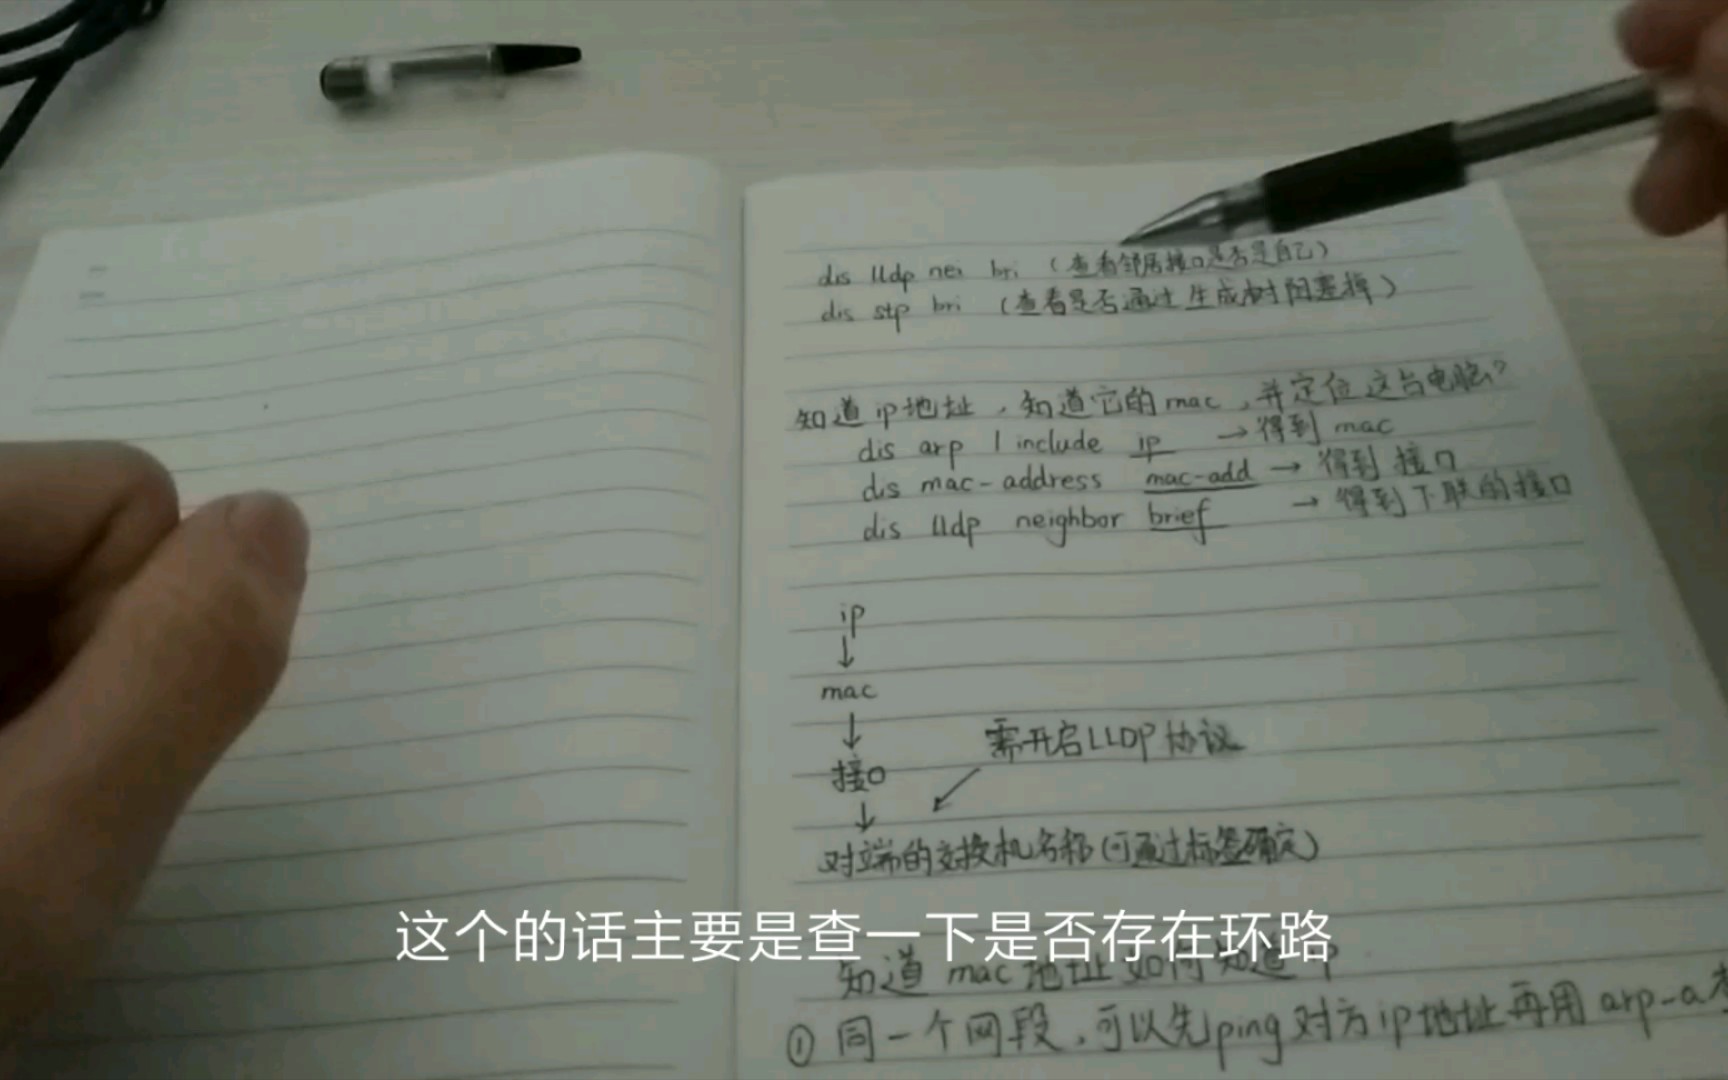 dis lldp nei bri (查看邻居接口是否是自己)
dis stp bri (查看是否通过生成树阻塞掉)
知道ip地址,知道它的mac,并定位这台电脑?
dis arp | include ip → 得到 mac
dis mac-address mac-add → 得到 接口
dis lldp neighbor brief → 得到下联的接口
ip
↓
mac
↓
接口
需开启LLDP协议
↓
对端的交换机名称(可通过标签确定)
这个的话主要是查一下是否存在环路
知道 mac 地址 如何知道 ip
① 同一个网段,可以先ping对方ip地址再用 arp-a